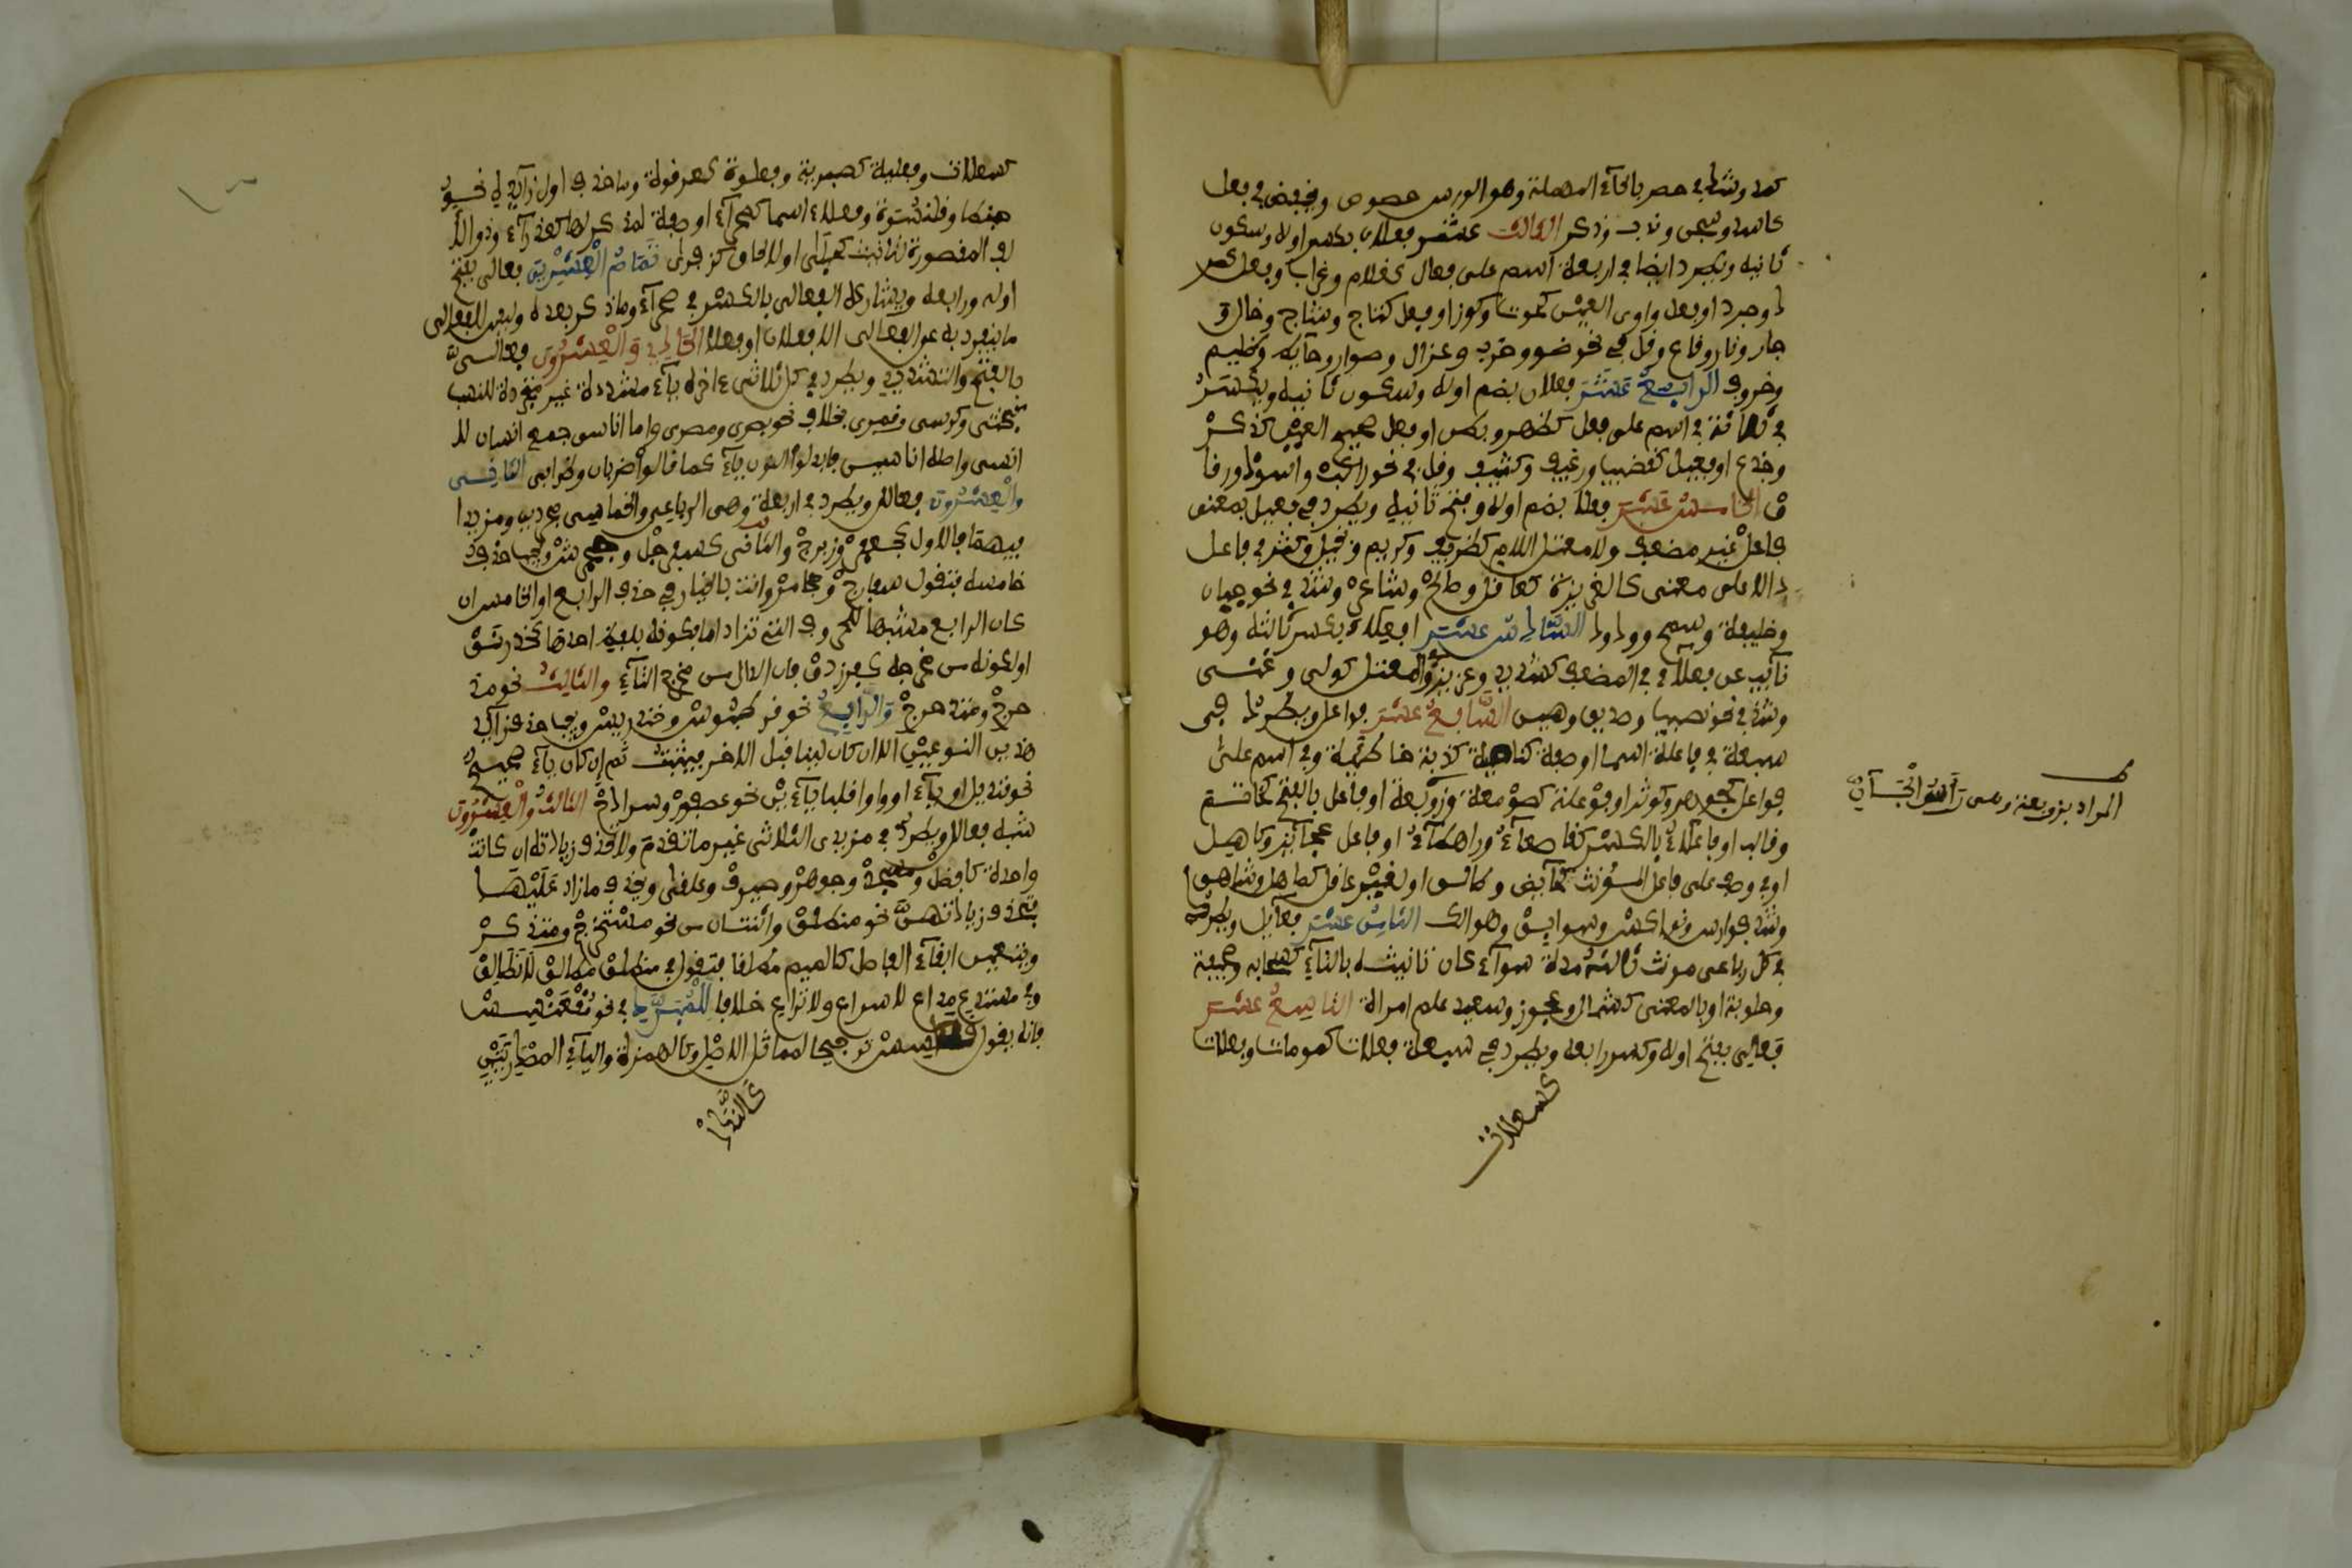 كبد وشذ في حص بالحاء المهملة وهو الورس حصوص وخفض في فعل
كاسد وسجن وندب وذكر الثالث عشر فعلان بكسر اوله وسكون
ثانيه ويطرد ايضا في اربعة اسم على فعال كغلام وغراب وفعل كصر
د وجرد او فعل واوي العين كحوت وكوز او فعل كتاج وساج وخال و
جار ونار وقاع وقل في نحو صنو وخرب وغزال وصوار وحايط وظليم
وخروف الرابع عشر فعلان بضم اوله وسكون ثانيه ويكسر
في ثلاثة في اسم على فعل كظهر وبطن او فعل صحيح العين كذكر
وجذع او فعيل كقضيب ورغيف وكثيب وقل في نحو راكب واسود وزقا
ق الخامس عشر فعلا بضم اوله وفتح ثانيه ويطرد في فعيل بمعنى
فاعل غير مضعف ولا معتل اللام كظريف وكريم وبخيل وكثر في فاعل
دالا على معنى كالغريزة كعاقل وصالح وشاعر وشذ في نحو جبان
وخليفة وسمح وودود السادس عشر افعلاء بكسر ثالثه وهو
نائب عن فعلاء في المضعف كشديد وعزيز والمعتل كولي وغني
وشذ في نحو نصيب وصديق وهين السابع عشر فواعل ويطرد في
سبعة في فاعلة اسما او صفة كناصية كاذبة خاطئة وفي اسم على
فوعل كجوهر وكوثر او فوعلة كصومعة وزوبعة او فاعل بالفتح كخاتم
وقالب او فاعلاء بالكسر كقاصعاء وراهطاء او فاعل كجائز وكاهل
او في وصف على فاعل لمؤنث كحائض وطالق او لغير عاقل كصاهل وشاهق
وشذ فوارس ونواكس وسوابق وهوالك الثامن عشر فعائل ويطرد
في كل رباعي مونث ثالثه مدة سواء كان تانيثه بالتاء كسحابة وصحيفة
وحلوبة او بالمعنى كشمال وعجوز وسعيد علم امراة التاسع عشر
فعالي بفتح اوله وكسر رابعه ويطرد في سبعة فعلات كموماة وفعلات
كسعلاة
المراد بزوبعة وس رئيس الجان
كسعلاة وفعلية كهبرية وفعلوة كعرقوة وما حذف اول زايديه نحو
حبنطا وقلنسوة وفعلاء اسما كصحراء او صفة لمذكر لها كعذراء وذو الا
لف المقصورة للتانيث كحبلى او للالحاق كذفرى تمام العشرين فعالى بفتح
اوله ورابعه ويشارك الفعالي بالكسر في صحراء وما ذكر بعده وليس للفعالى
ما ينفرد به عن الفعالي الا فعلان او فعلا الحادي والعشرون فعالي
بالفتح والتشديد ويطرد في كل ثلاثي اخره ياء مشددة غير مجددة للنسب
كبختي وكرسي وقمري بخلاف نحو بصري ومصري واما اناسي جمع انسان لا
انسي واصله اناسين فابدلوا النون ياء كما قالوا ضربان وظرابي الثاني
والعشرون فعالل ويطرد في اربعة وهي الرباعي والخماسي مجردين ومزيدا
فيهما فالاول كجعفر وزبرج والثاني كسفرجل وجحمرش ويجب حذف
خامسه فتقول سفارج وجحامر وانت بالخيار في حذف الرابع او الخامس ان
كان الرابع مشبها للحروف التي تزاد اما بكونه بلفظ احدها كخدرنق
او بكونه من مخرجه كفرزدق فان الدال من مخرج التاء والثالث نحو مد
حرج ومتدحرج والرابع نحو قرطبوس وخندريس ويجب حذف زائد
هذين النوعين الا ان كان لينا قبل الاخر فيثبت ثم ان كان ياء صحح
نحو قنديل او ياء او واوا قلبا ياءين نحو عصفور وسرداح الثالث والعشرون
شبه فعالل ويطرد في مزيدي الثلاثي غير ما تقدم ولا تحذف زيادته ان كانت
واحدة كافضل ومسجد وجوهر وصيرف وعلقى ويحذف ما زاد عليها
فتحذف زيادتهن نحو منطلق واثنتان من نحو مستخرج ومتذكر
ويتعين ابقاء الفاضل كالميم مطلقا فتقول في منطلق مطالق لا نطالق
وفي مستدع مداع لا سداع ولا تداع خلافا للمبرد في نحو مقعنسس
فانه يقول قعاسس ترجيحا لمماثل الاصل وكالهمزة والياء المصدرتين
كالندد